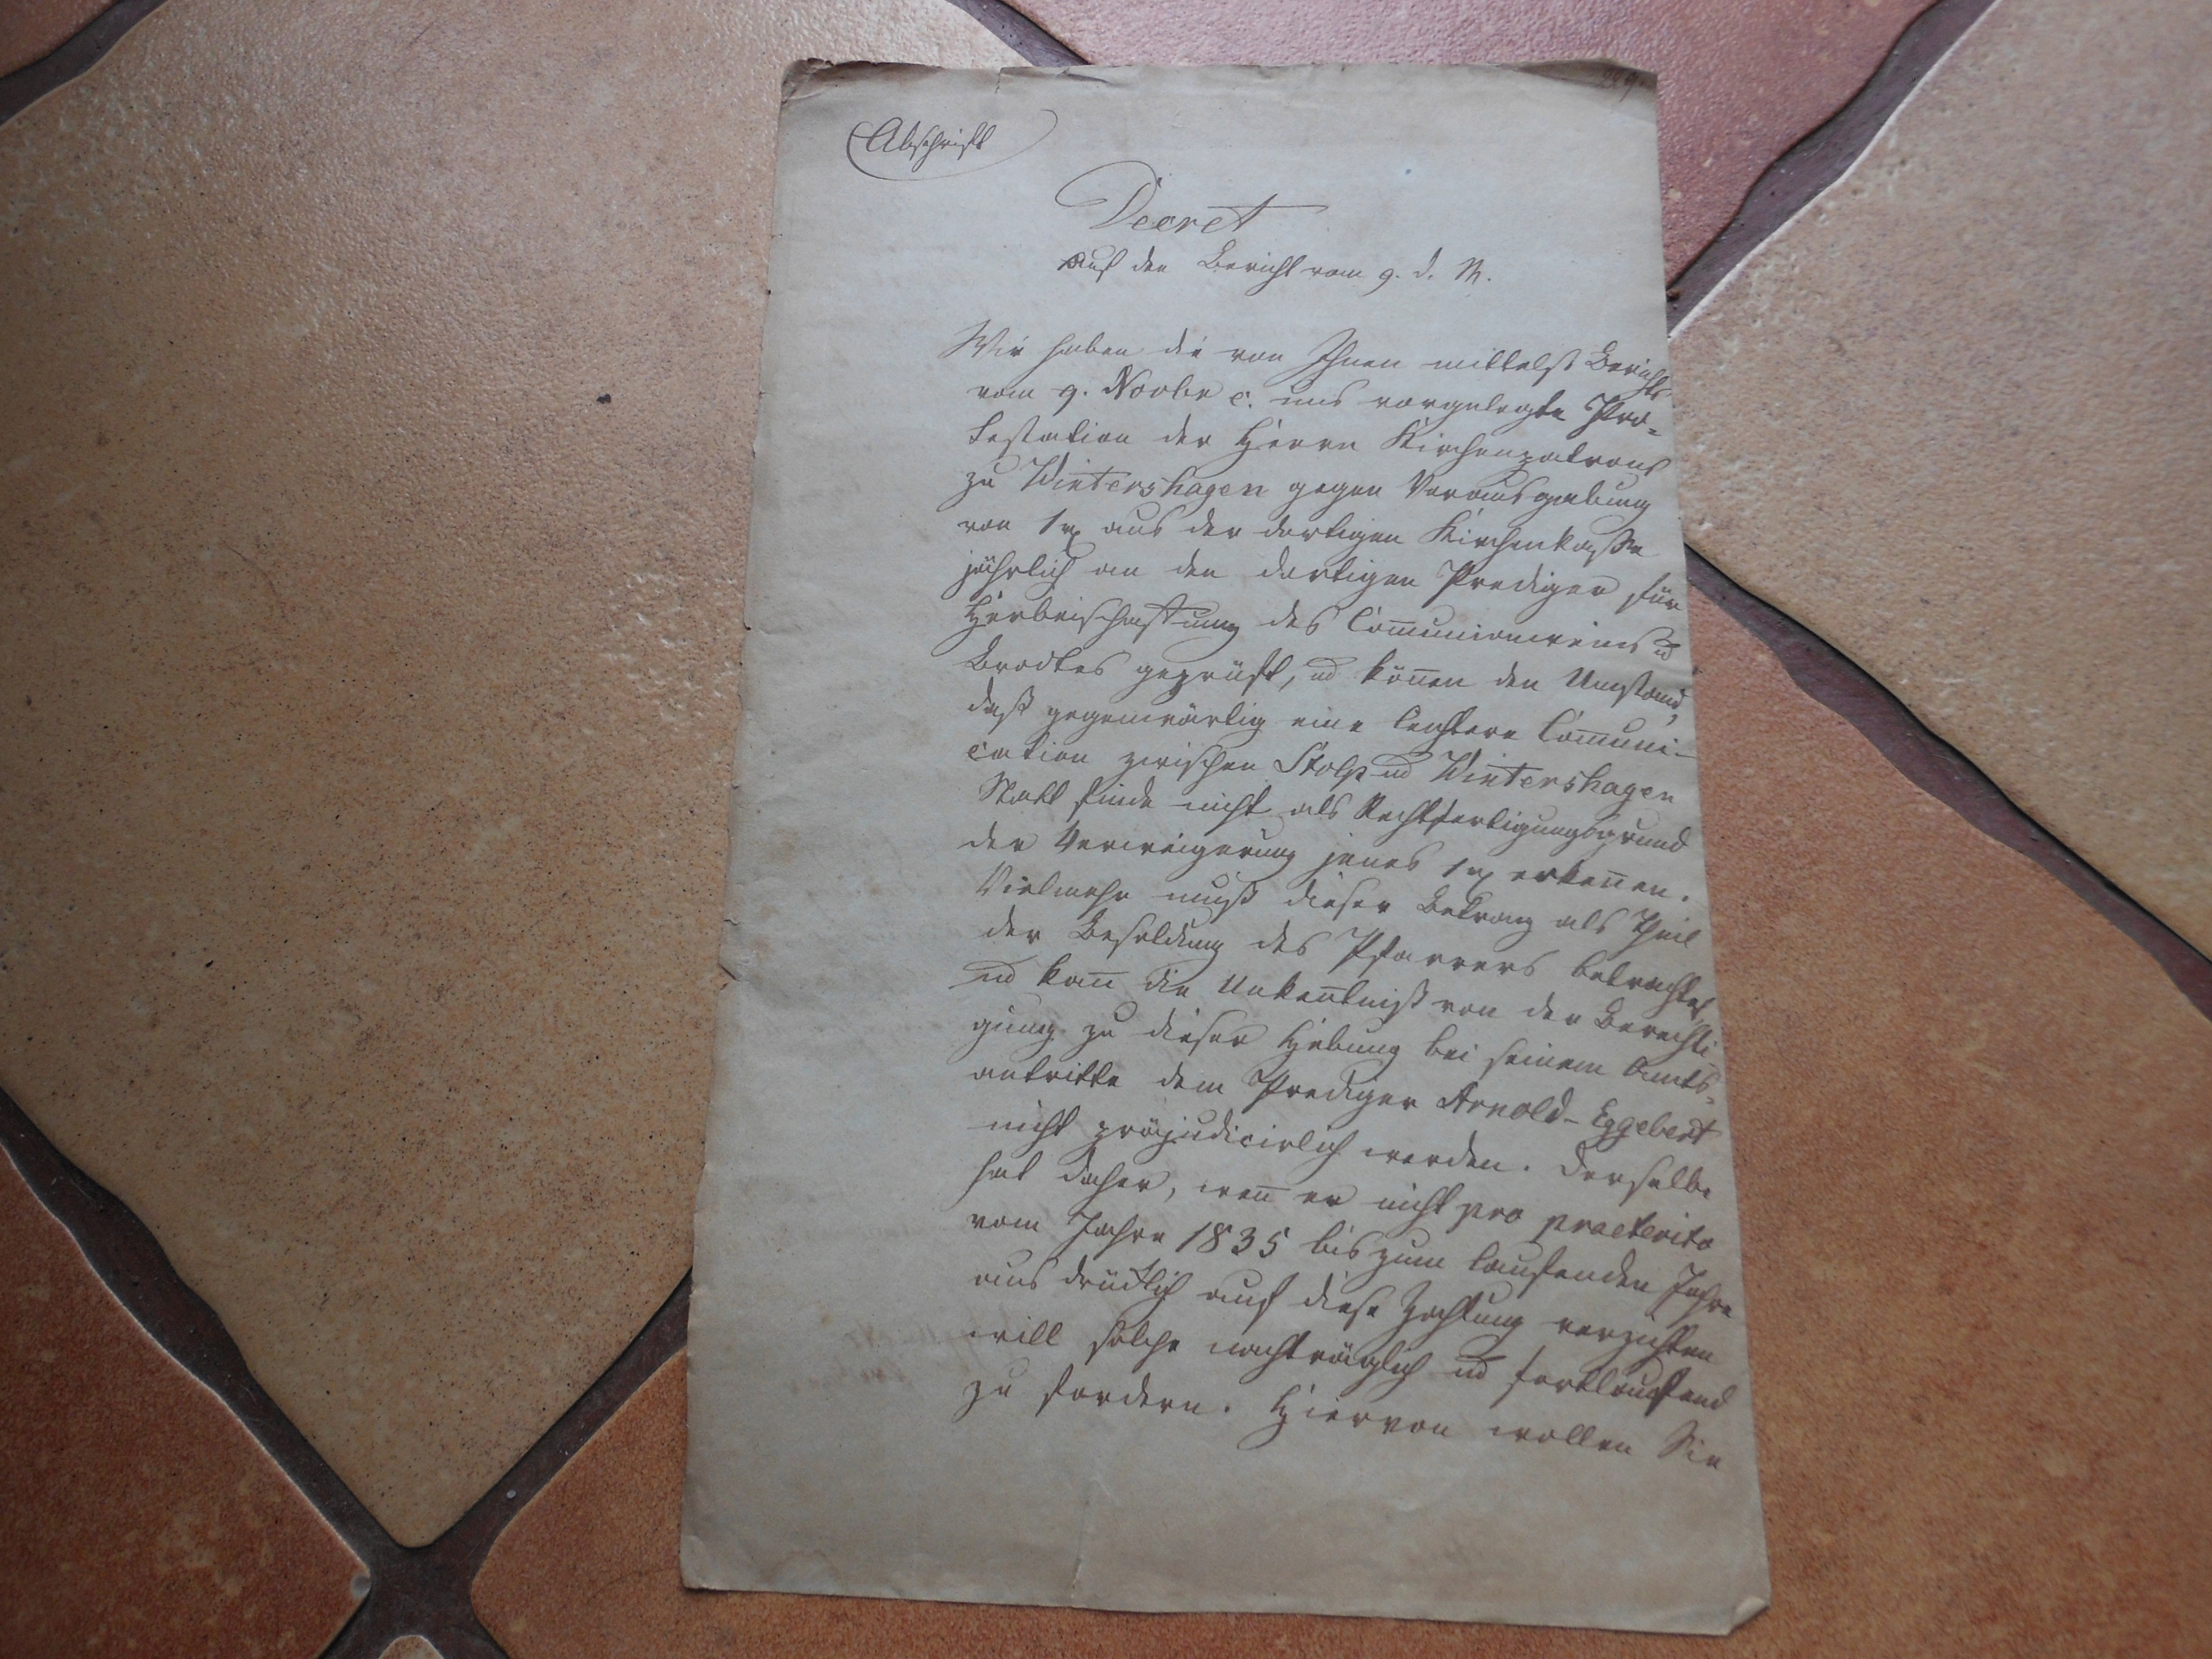 Abschrift
Decret
auf den Bericht vom 9. d. M.
Wir haben die von Ihnen mittelst Berichts
vom 9. Novbr c. uns vorgelegte Pro-
testation der Herrn Kirchenpatrons
zu Wintershagen gegen Verausgabung
von 1 rℓ aus der dortigen Kirchenkasse
jährlich an den dortigen Prediger für
Herbeischaffung des Com̅unionweins u
Brodtes geprüft, ud kön̅en den Umstand,
daß gegenwärtig eine leichtere Com̅uni-
cation zwischen Stolp ud Wintershagen
Statt finde nicht als Rechtfertigungsgrund
der Verweigerung jenes 1 rℓ erken̅en.
Vielmehr muß dieser Betrag als Theil
der Besoldung des Pfarrers betrachtet
ud kan̅ die Unken̅tniß von der Berechti
gung zu dieser Hebung bei seinem Amts-
antritte dem Prediger Arnold-Eggebert
nicht präjudicirlich werden. Derselbe
hat daher, wen̅ er nicht pro praeterito
vom Jahre 1835 bis zum laufenden Jahre
ausdrücklich auf diese Zahlung verzichten
will solche nachträglich ud fortlaufend
zu fordern. Hiervon wollen Sie